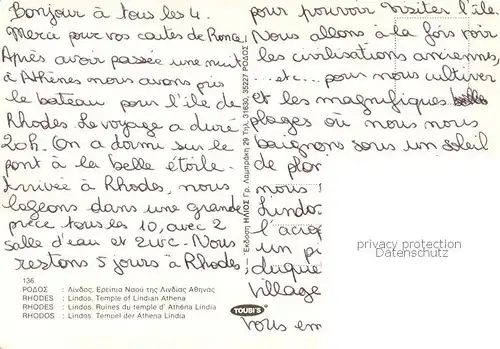 Bonjour à tous les 4.
Merci pour vos cartes de Rome.
Après avoir passée une nuit
à Athènes nous avons pris
le bateau pour l'île de
Rhodes. Le voyage a duré
20h. On a dormi sur le
pont à la belle étoile.
Arrivée à Rhodes, nous
logeons dans une grande
pièce tous les 10, avec 2
salle d'eau et 2 wc. Nous
restons 5 jours à Rhodes
pour pouvoir visiter l'île
Nous allons à la fois voir
les civilisations anciennes,
...etc... pour nous cultiver
et les magnifiques belles
plages où nous nous
baignons sous un soleil
de plom
nous
Lindo
l'acro
un p
duque
village
vous em
136
ΡΟΔΟΣ : Λίνδος. Ερείπια Ναού της Λινδίας Αθηνάς
RHODES : Lindos. Temple of Lindian Athena
RHODES : Lindos. Ruines du temple d' Athéna Lindia
RHODOS : Lindos. Tempel der Athena Lindia
Έκδοση ΗΛΙΟΣ Γρ. Λαμπράκη 29 Τηλ. 31630, 35227 ΡΟΔΟΣ
YOUBI'S
privacy protection
Datenschutz